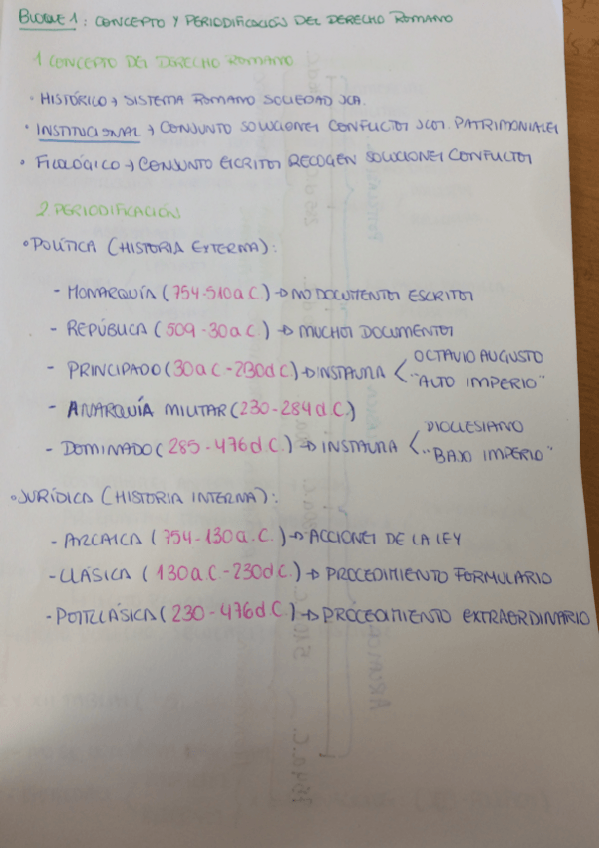 BLOQUE 1: CONCEPTO Y PERIODIFICACIÓN DEL DERECHO ROMANO
1 CONCEPTO DEL DERECHO ROMANO
· HISTÓRICO → SISTEMA ROMANO SOCIEDAD JCA.
· INSTITUCIONAL → CONJUNTO SOLUCIONES CONFLICTOS JCOS. PATRIMONIALES
· FILOLÓGICO → CONJUNTO ESCRITOS RECOGEN SOLUCIONES CONFLICTOS
2 PERIODIFICACIÓN
· POLÍTICA (HISTORIA EXTERNA):
- MONARQUÍA (754-510 a C.) → NO DOCUMENTOS ESCRITOS
- REPÚBLICA (509-30 a C.) → MUCHOS DOCUMENTOS
- PRINCIPADO (30 a C-230 d C.) → INSTAURA < OCTAVIO AUGUSTO
"ALTO IMPERIO"
- ANARQUÍA MILITAR (230-284 d C.)
- DOMINADO (285-476 d C.) → INSTAURA < DIOCLESIANO
"BAJO IMPERIO"
· JURÍDICA (HISTORIA INTERNA):
- ARCAICA (754-130 a.C.) → ACCIONES DE LA LEY
- CLÁSICA (130 a C-230 d C.) → PROCEDIMIENTO FORMULARIO
- POSTCLÁSICA (230-476 d C.) → PROCEDIMIENTO EXTRAORDINARIO